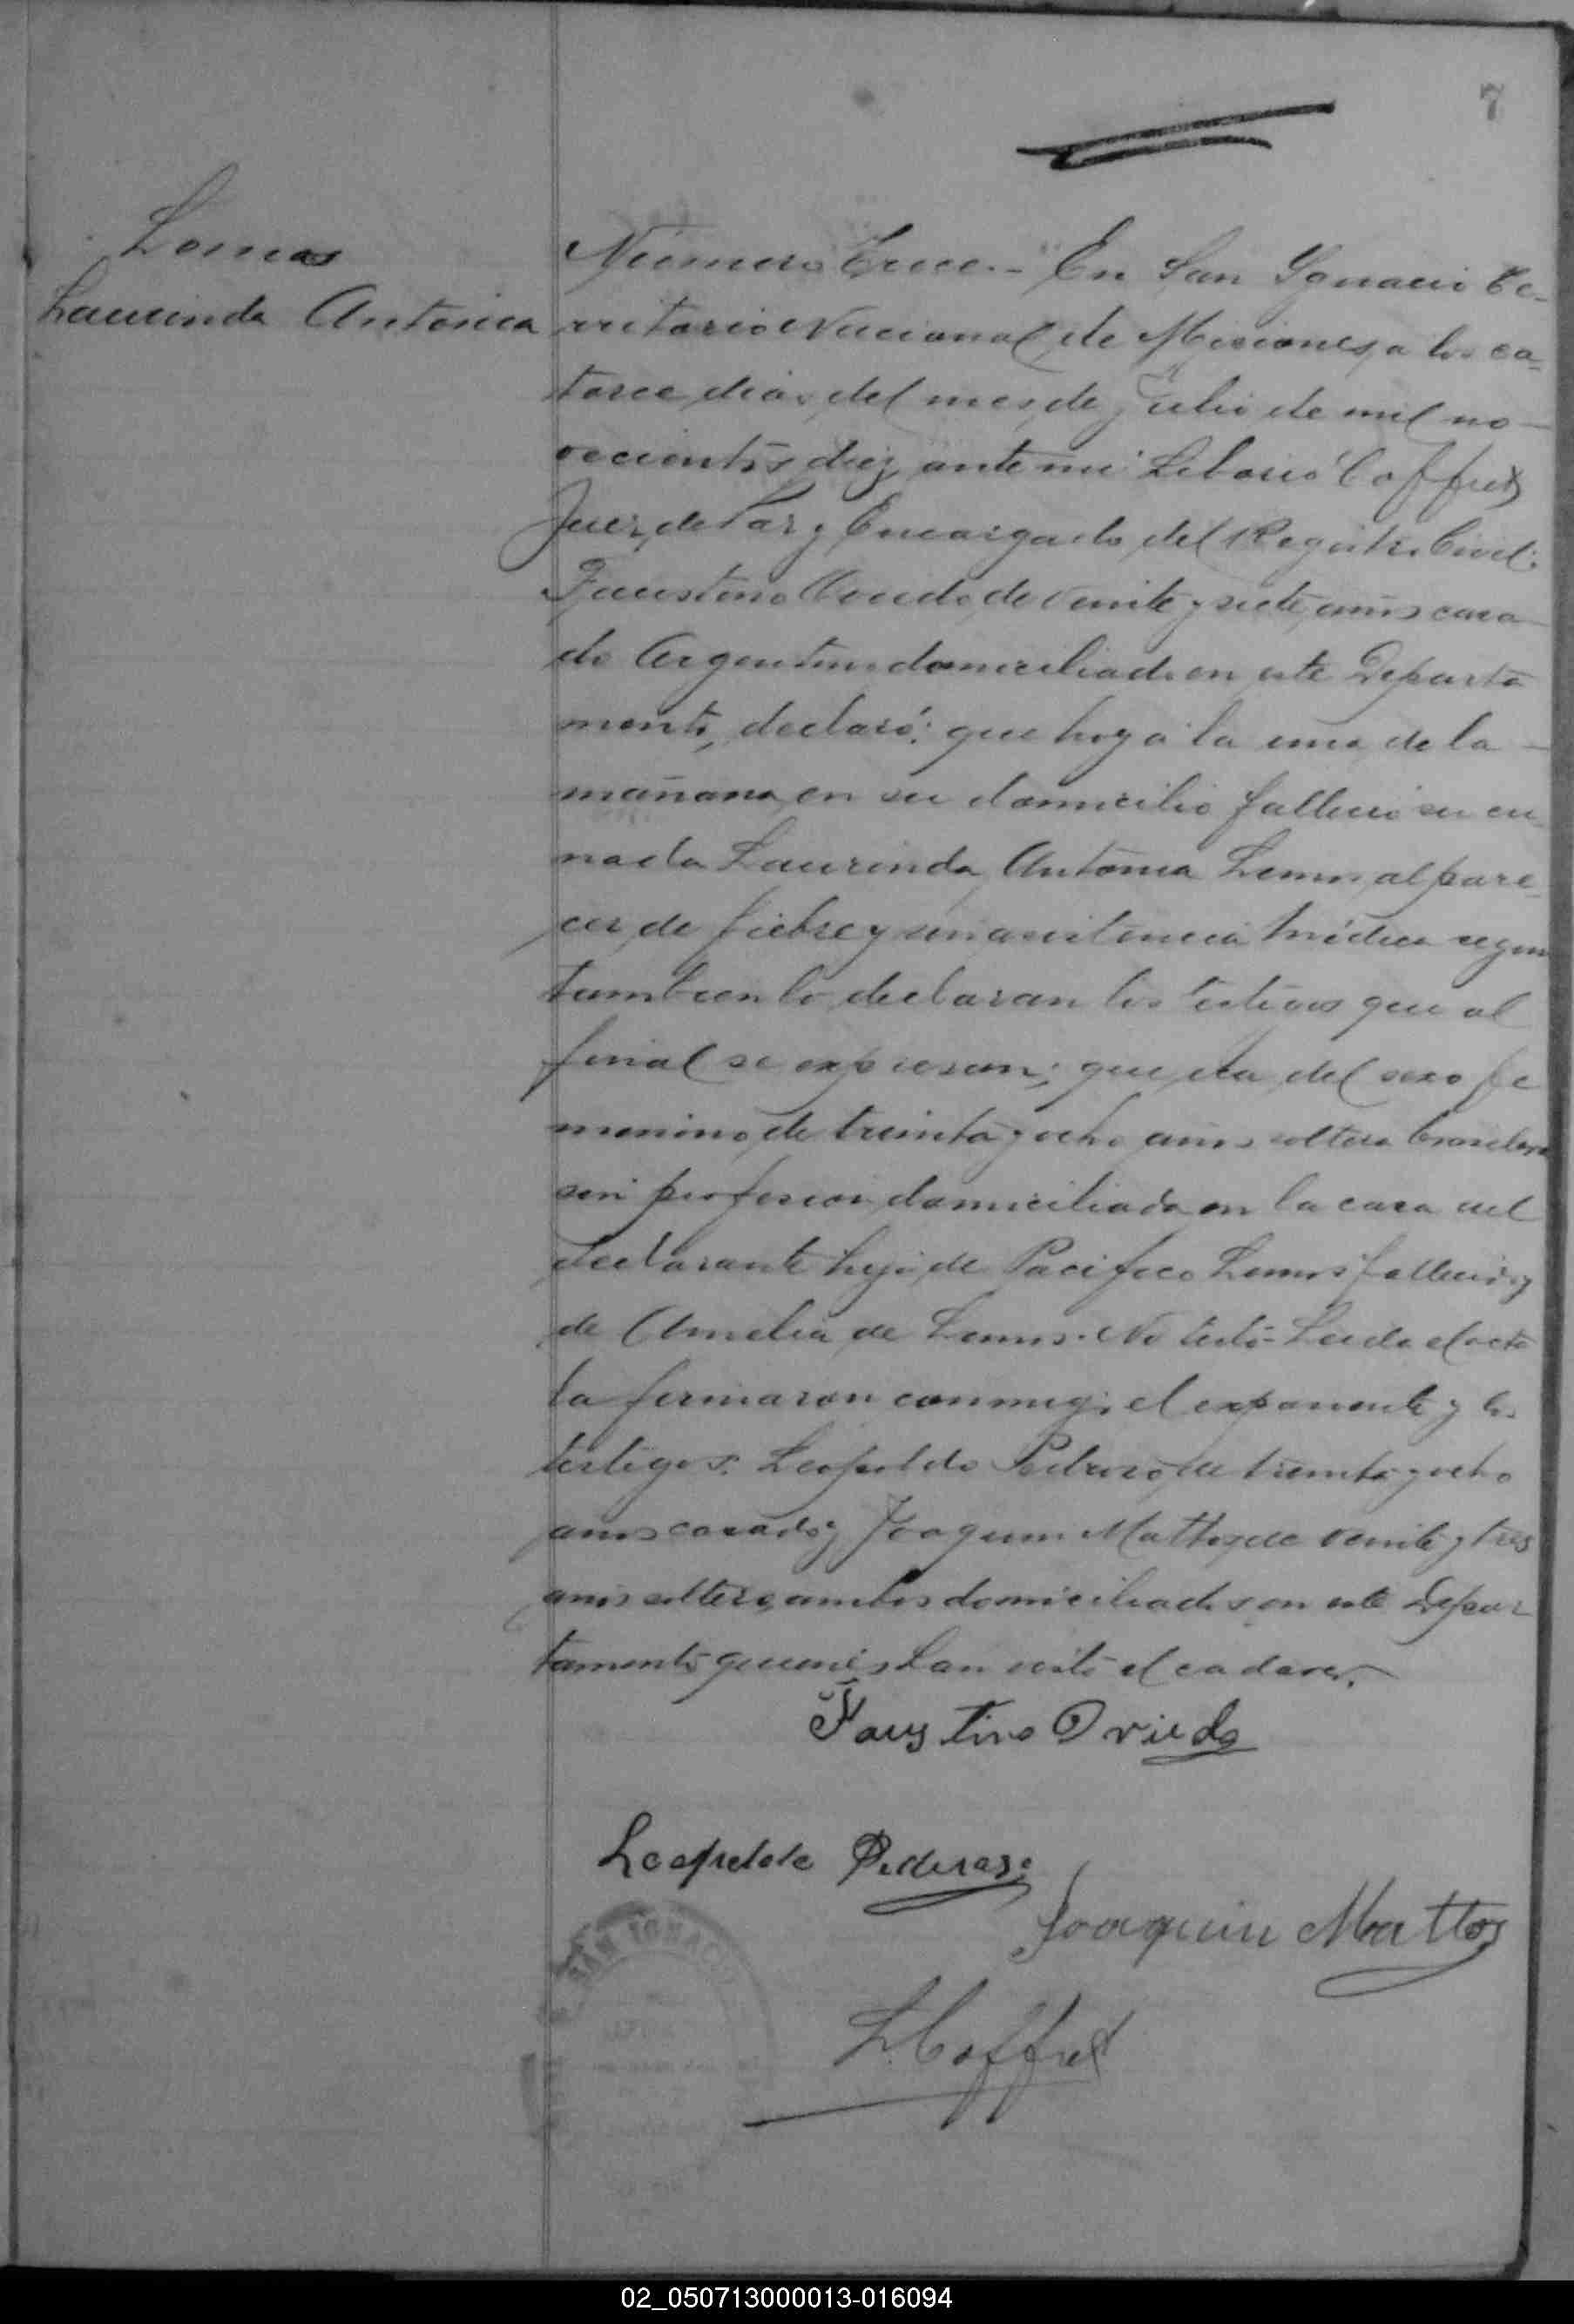 7
Lemos
Laurinda Antonia
Número Trece.- En San Ygnacio Te-
rritorio Nacional de Misiones, a los ca-
torce dias del mes de Julio de mil no-
vecientos diez, ante mi Liborio Coffret
Juez de Paz y Encargado del Registro Civil:
Faustino Oviedo, de veinte y siete años casa-
do Argentino domiciliado en este Departa
mento, declaró: que hoy á la una de la
mañana en su domicilio falleció su cu-
nada Laurinda Antonia Lemos, al pare-
cer de fiebre y sin asistencia médica segun
tambien lo declaran los testigos que al
final se expresan; que era del sexo fe
menino, de treinta y ocho años soltera brasilera
sin profesion domiciliada en la casa del
declarante hija de Pacifico Lemos falleció y
de Amelia de Lemos. No testó- Leida el acta
la firmaron conmigo el exponente y los
testigos: Leopoldo Pedrozo, de treinta y ocho
años casado, y Joaquin Mattos, de veinte y tres
anos soltero, ambos domiciliados en este Depar
tamento quienes han visto el cadaver.
Faustino Oviedo
Leopoldo Pedroso
Joaquin Mattos
L. Coffret
SAN IGNACIO
02_050713000013-016094